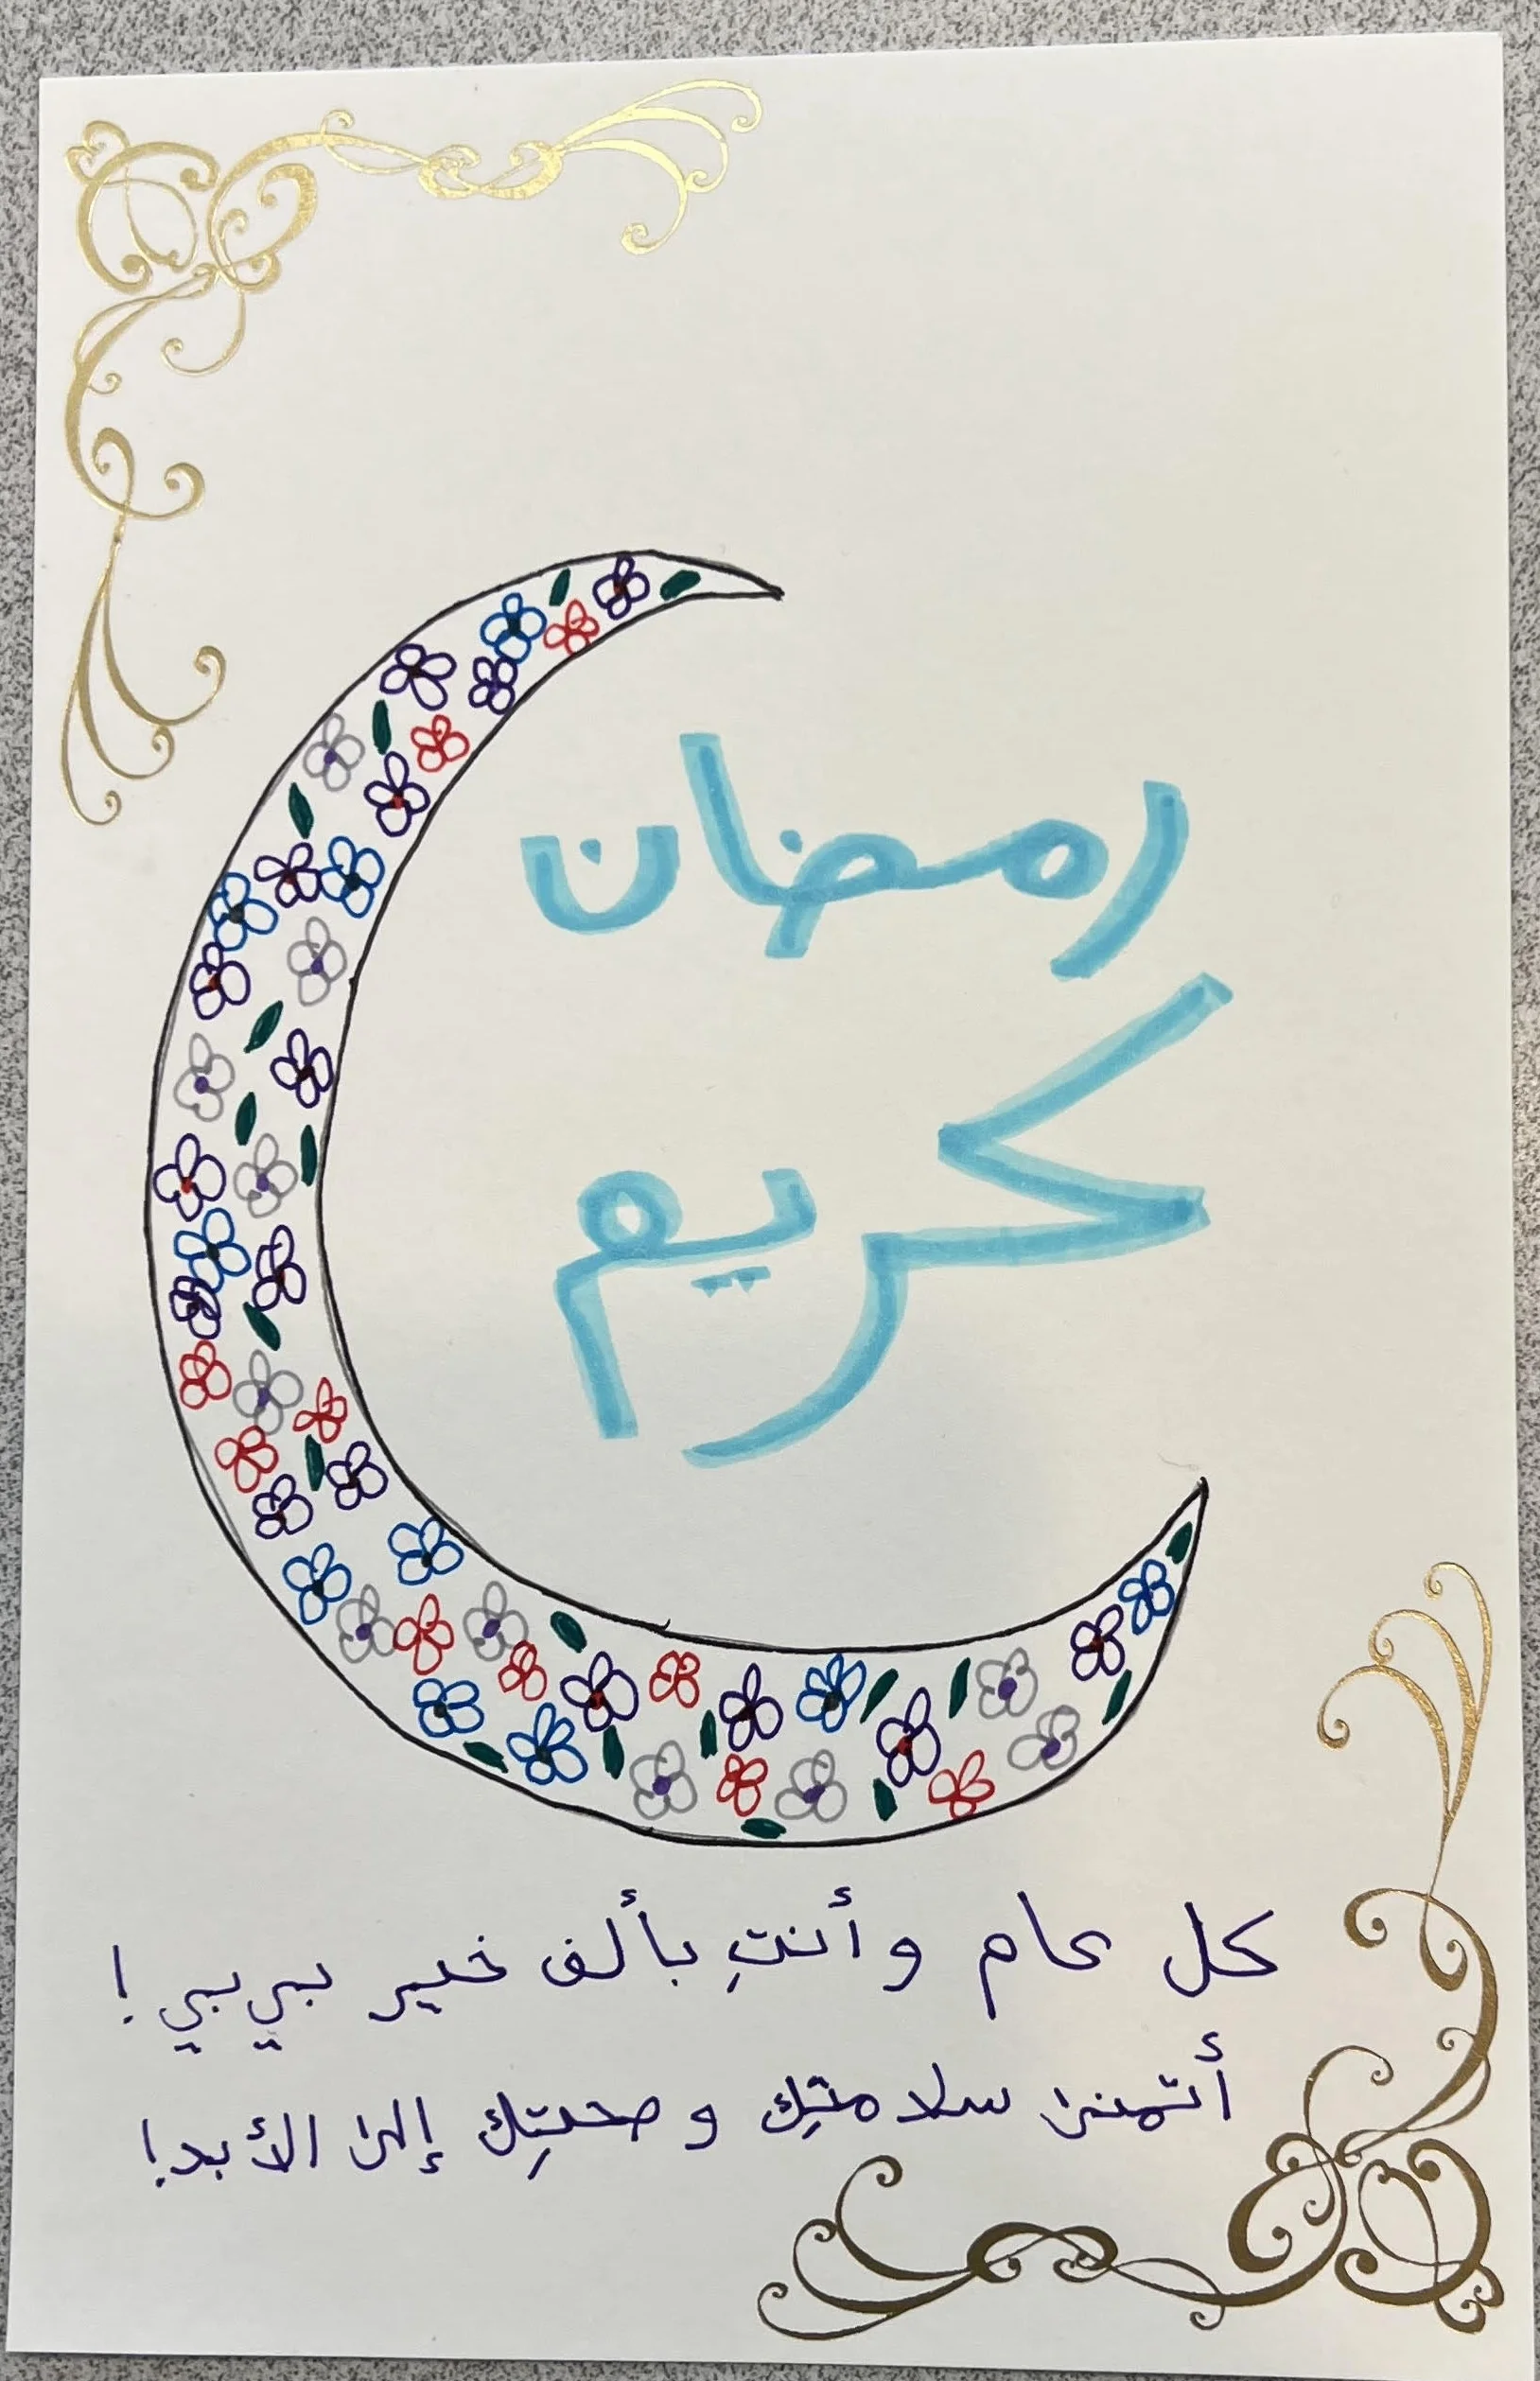 رمضان
كريم
كل عام وأنتِ بألف خير بي بي!
أتمنى سلامتِك وصحتِك إلى الأبد!